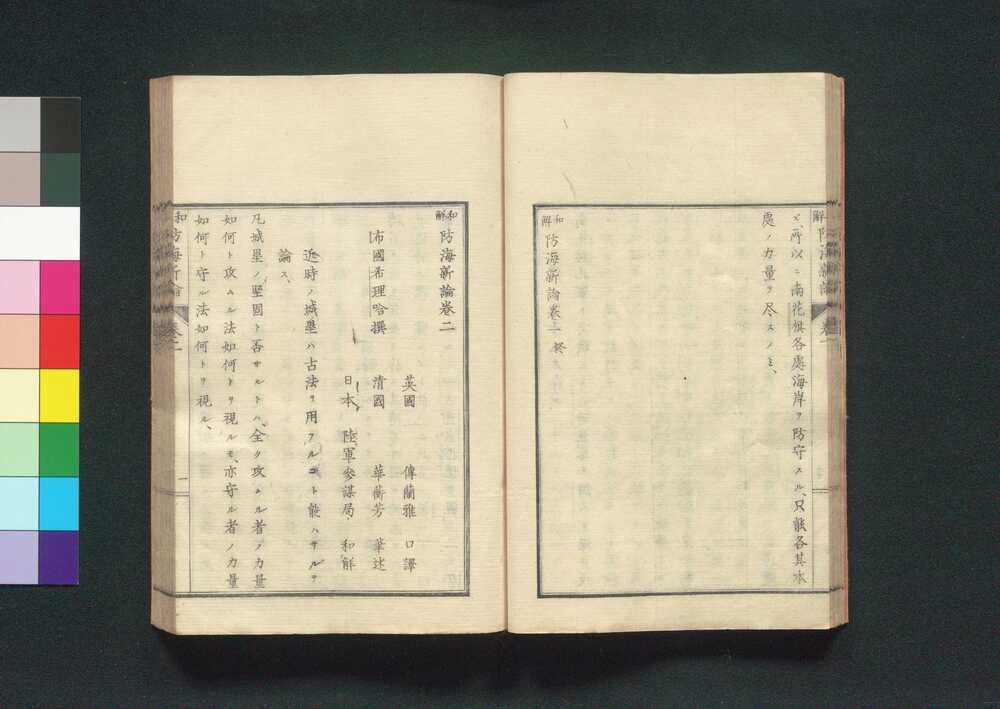 ヾ、所以ニ南花旗各處海岸ヲ防守スル、只能各其本
處ノ力量ヲ尽スノミ、
和解 防海新論卷一 終
和解 防海新論卷二
布國希理哈撰
英國 傅蘭雅 口譯
清國 華蘅芳 筆述
日本 陸軍參謀局 和解
近時ノ城壘ハ古法ヲ用フルコト能ハサルヲ
論ス、
凡城壘ノ堅固ト否サルトハ、全ク攻ムル者ノ力量
如何ト攻ムル法如何トヲ視ルモ、亦守ル者ノ力量
如何ト守ル法如何トヲ視ル、
和 防海新論 卷二
一